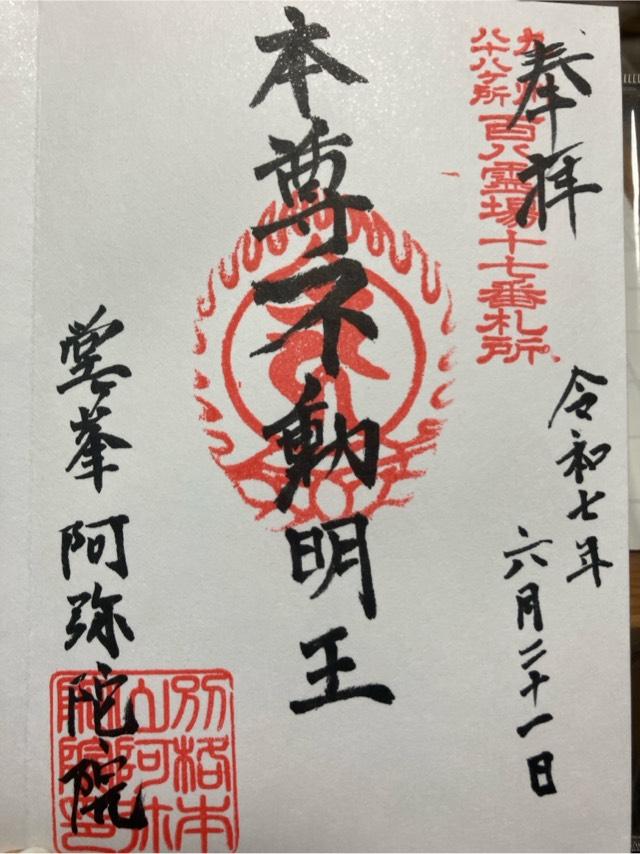 奉拝
九州
八十八ヶ所
百八霊場十七番札所
令和七年
六月二十一日
本尊不動明王
堂峯 阿弥陀院
別格本
山阿弥
陀院印